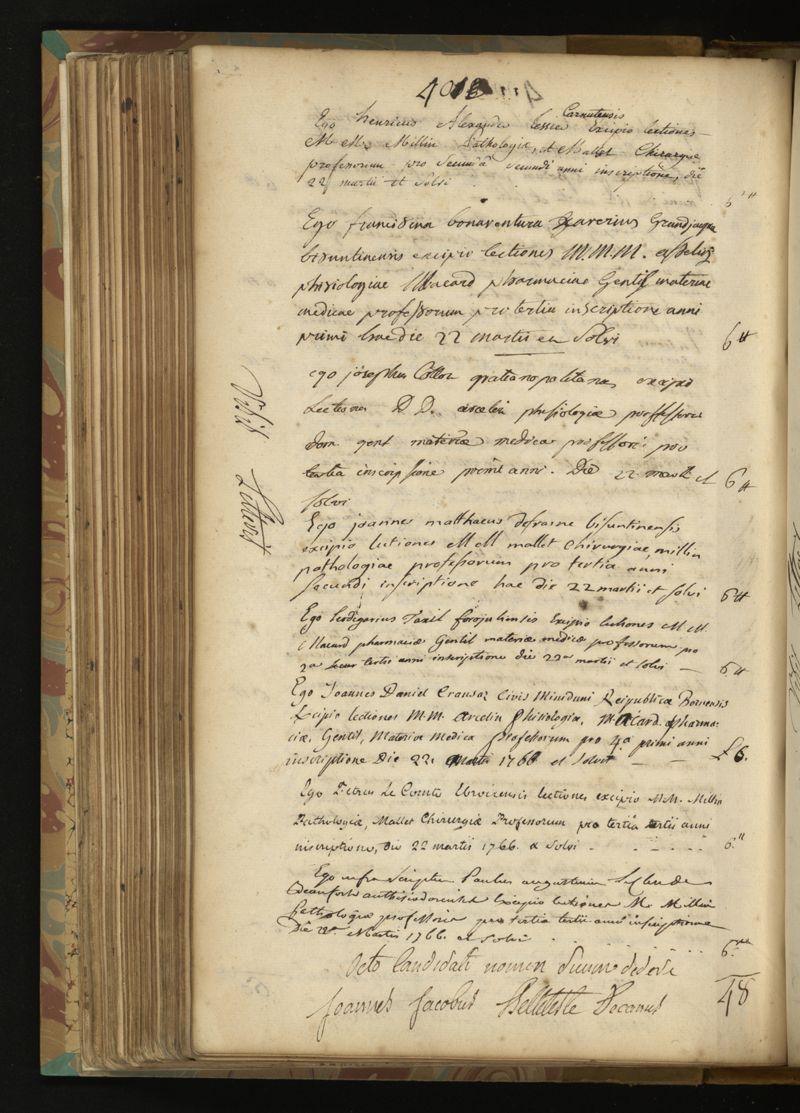 401
Carnutensis
Ego henricus Alexander Tessier Excipio lectiones
M M. Millin Pathologiæ, et Mallet Chirurgiæ
professorum pro secunda secundi anni inscriptione, die
22 martii et solvi
6 ₶
Ego franciscus bonaventura Xaverius Grandjaquet
bisuntinensis excipio lectiones M.M.M. asselin
phisiologiae Macard pharmaciae Gentil materiae
medicae professorum pro tertia inscriptione anni
primi hac die 22 martis et Solvi
6 ₶
ego josephus Collot gratianopolitanus
Lectiones D D. arcelin phisiologiæ professoris
dom. gent materiæ medicæ professoris pro
tertia inscripssione primi anni. Die 22 martii et
6 ₶
solvi
Ego joannes matthaeus defrasne bisuntinensis
excipio lectiones M M mallet chirurgiae, millin
pathologiae professorum pro tertia anni
secundi inscriptione hac die 22 martii et solvi
6 ₶
Ego Leodegarius Taxil forojuliensis Excipio lectiones M M.
Macard pharmaciæ Gentil materiæ medicæ professorum pro
2a anni inscriptione die 22a martii et solvi
6 ₶
Ego Joannes Daniel Crausaz Civis Miniduni Reipublicæ Bernensis
Excipio lectiones M.M. Arcelin Phisiologiæ, Macard. pharma-
ciæ, Gentil, Materiæ Medicæ Professorum pro 4a primi anni
inscriptione Die 22. Martii 1766 et Solvi
£ 6.
Ego Petrus Le Comte Ebroicensis lectiones excipio M.M. Millin
Pathologiæ, Mallet Chirurgiæ Professorum pro tertia tertii anni
inscriptione, die 22 martii 1766. & Solvi
6 ₶
Ego infra scriptus Paulus augustinus
Beaufort authissiodorensis Excipio lectiones M. Millin
Pathologiæ professoris pro tertia tertii anni inscriptione
Die 22a Martis 1766. et Solvi
6 ₶
Octo Candidati nomen suum dedere
48
Joannes Jacobus Belleteste Decanus